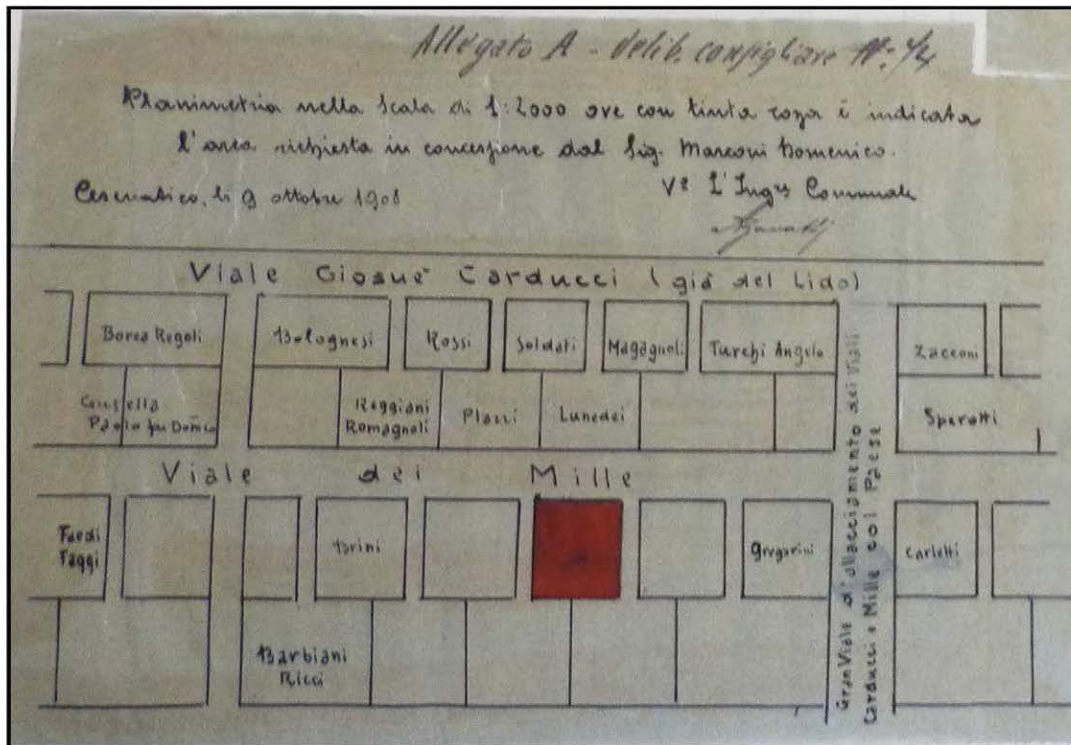 Allegato A - delib. consigliare N° 4/4
Planimetria nella Scala di 1:2000 ove con tinta rossa è indicata
l'area richiesta in concessione dal Sig. Marconi Domenico.
Cesenatico, li 9 ottobre 1908
V° L'Ingre Comunale
Viale Giosuè Carducci (già del Lido)
Borea Regoli
Bolognesi
Rossi
Soldati
Magagnoli
Turchi Angelo
Zacconi
Casella
Paolo fu Domco
Reggiani
Romagnoli
Plazzi
Lunedei
Sperotti
Viale dei Mille
Faedi
Faggi
Brini
Gregorini
Carletti
Barbiani
Ricci
Gran Viale d'allacciamento dei Viali
Carducci e Mille col Paese